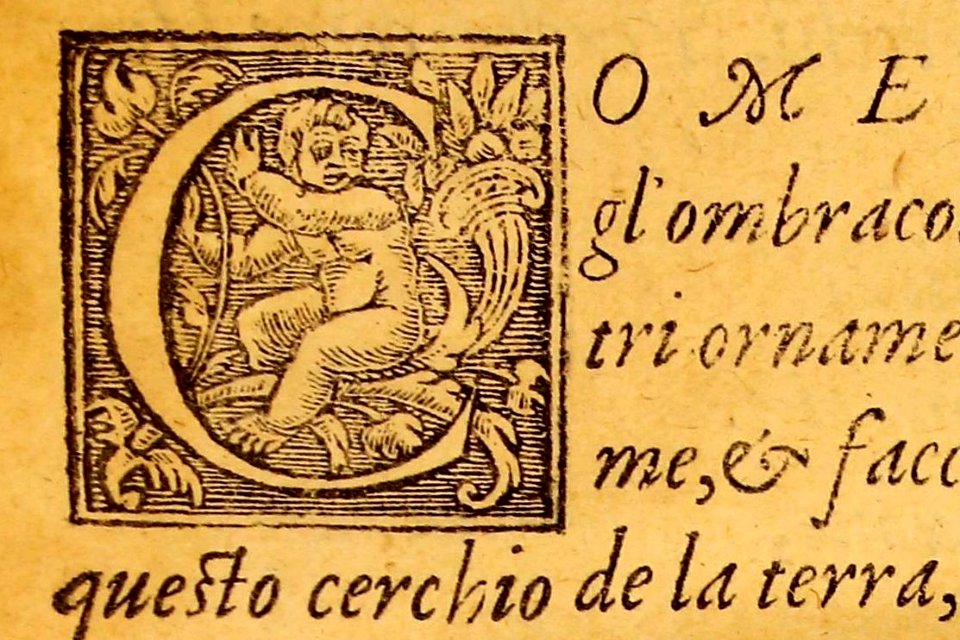 COME
gl'ombraco
tri orname
me, & facc
questo cerchio de la terra,